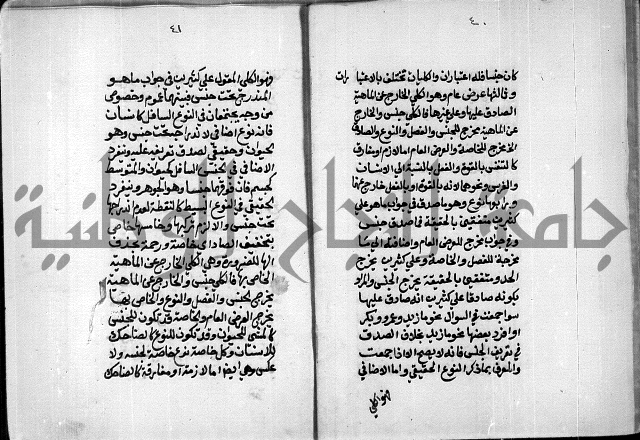 ٤٠
كان جنسا فله اعتباران والكليات تختلف بالاعتبارات
وثالثها عرض عام وهو الكلي الخارج عن الماهية
الصادق عليها وعلى غيرها فالكلي جنس والخارج
عن الماهية مخرج للجنس والفصل والنوع والصادق
مخرج للخاصة والعرض العام اما لازم او مفارق
كالتنفس بالقوة والفعل بالنسبة الى الانسان
والفرس ونحوهما لانه بالقوة وبالفعل خارج
النوع وهو ما صدق في جواب ما هو على
كثيرين متفقين بالحقيقة فما صدق جنس
وفي جواب مخرج للعرض العام واضافة الى ما
مخرجة للفصل والخاصة وعلى كثيرين مخرج
الحد ومتفقين بالحقيقة يخرج الجنس والمراد
بكونه صادقا على كثيرين انه صادق عليها
سواء جمعت في السؤال نحو ما زيد وعمرو وبكر
او افرد بعضها نحو ما زيد بخلاف الصدق
في تعريف الجنس فانه لا يصح الا اذا جمعت
والمعرف بما ذكر النوع الحقيقي واما الاضافي
فهو الكلي
٤١
فهو الكلي المقول على كثيرين في جواب ما هو
المندرج تحت جنس فبينهما عموم وخصوص
من وجه يجتمعان في النوع السافل كانسان
فانه نوع اضافي لاندراجه تحت جنس وهو
الحيوان وحقيقي لصدق تعريفه عليه وينفرد
الاضافي في الجنس السافل كحيوان والمتوسط
كجسم فان فوقهما جنسا وهو الجوهر وينفرد
الحقيقي في النوع البسيط كالنقطة لعدم اندراجها
تحت جنس والا لزم تركبها وخامسها خاص
بتخفيف الصاد اي خاصة ورخمه بحذف
الها للضرورة وهي الكلي الخارج عن الماهية
الخاص بها فالكلي جنس والخارج عن الماهية
يخرج الجنس والفصل والنوع والخاص بها
يخرج العرض العام والخاصة قد تكون للجنس
كالمشي للحيوان وقد تكون للنوع كالضاحك
للانسان وكل خاصة نوع خاصة لجنسه ولا
عكس وهي ايضا اما لازمة او مفارقة كالضاحك
جامعة النجاح الوطنية